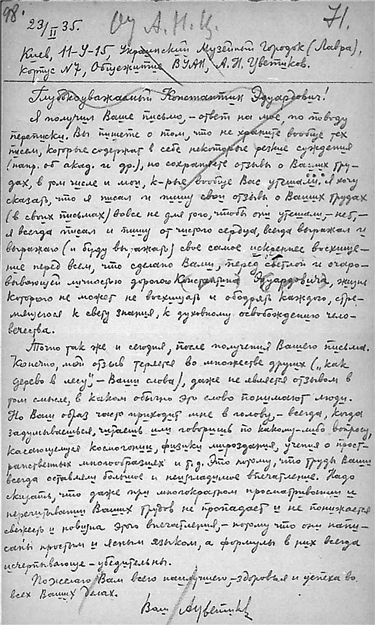 98.
От А.Н.Ц.
71.
23/II 35.
Киев, 11-У-15, Украинский Музейный Городок (Лавра),
корпус №7, Общежитие ВУАН, А.Н. Цветиков.
Глубокоуважаемый Константин Эдуардович!
Я получил Ваше письмо, – ответ на мое, по поводу
переписки. Вы пишете о том, что не храните вообще тех
писем, которые содержат в себе некоторые резкие суждения
(напр. об акад. и др.), но сохраняете отзывы о Ваших тру-
дах, в том числе и мои, к-рые вообще Вас утешали. Я хочу
сказать, что я писал и пишу свои отзывы о Ваших трудах
(в своих письмах) вовсе не для того, чтобы они утешали, – нет, –
я всегда писал и пишу от чистого сердца, всегда выражал и
выражаю (и буду выражать) свое самое искреннее восхище-
ние перед всем, что сделано Вами, перед светлой и очаро-
вывающей личностью дорогого Константина Эдуардовича, жизнь
которого не может не восхищать и ободрять каждого, стре-
мящегося к свету знания, к духовному освобождению чело-
вечества.
Точно так же и сегодня, после получения Вашего письма.
Конечно, мой отзыв теряется во множестве других („как
дерево в лесу", – Ваши слова), даже не является отзывом в
том смысле, в каком обычно это слово понимают люди.
Но Ваш образ часто приходит мне в голову, – всегда, когда
задумываешься, читаешь или говоришь по какому-либо вопросу,
касающемуся космогонии, физики мироздания, учения о прост-
ранственных многообразиях и т.д. Это потому, что труды Ваши
всегда оставляют большое и неизгладимое впечатление. Надо
сказать, что даже при многократном просматривании и
перечитывании Ваших трудов не пропадает и не понижается
свежесть и новизна этого впечатления, – потому что они напи-
саны простым и ясным языком, а формулы в них всегда
исчерпывающе-убедительны.
Пожелаю Вам всего наилучшего, – здоровья и успеха во
всех Ваших делах.
Ваш АЦветик